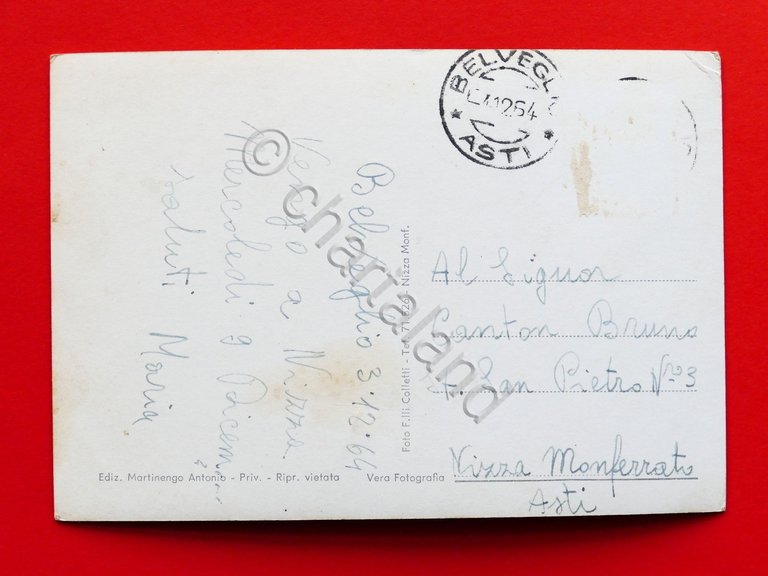 BELVEGLIO
4.12.64
ASTI
Belveglio 3.12.64
Vengo a Nizza
Mercoledì 9 Dicembre
saluti Maria
Foto F.lli Colletti - Nizza Monf.
Al Signor
Canton Bruno
San Pietro N° 3
Nizza Monferrato
Asti
Ediz. Martinengo Antonio - Priv. - Ripr. vietata
Vera Fotografia
© chartaland